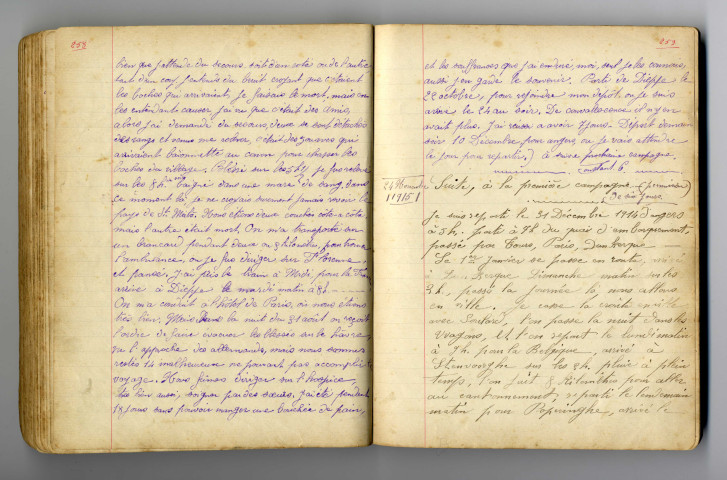 252
bien que j'attende du secours, soit d'un coté ou de l'autre
tout d'un coup j'entends du bruit croyant que c'étaient
les boches qui arrivaient, je faisais le mort, mais en
les entendant causer j'ai vu que c'était des amis,
alors j'ai demandé du secours, deux se sont détachés
des rangs et venus me relever, c'était des zouaves qui
arrivaient baïonnette au canon pour chasser les
boches du village. Blessé sur les 5h je fus relevé
sur les 8h baigné dans une mare de sang, dans
le moment là je ne croyais vraiment jamais revoir le
pays de St Malo. Nous étions deux couchés côte à côte
mais l'autre était mort. On m'a transporté sur
un brancard pendant deux ou 3 kilomètres, pour trouver
l'ambulance, où je fus dirigé sur
et pansé, J'ai pris le train à Midi, pour la
arrivé à Dieppe le mardi matin à 8h
On m'a conduit à l'hôtel de Paris, où nous étions
très bien. Mais dans la nuit du 31 août on reçoit
l'ordre de faire évacuer les blessés sur le Hâvre,
vu l'approche des allemands, mais nous sommes
restés 14 malheureux ne pouvant pas accomplir le
voyage. Nous fûmes dirigé sur l'hospice
très bien aussi, soignés par des sœurs, j'ai été pendant
18 jours sans pouvoir manger une bouchée de pain,
253
et les souffrances que j'ai enduré, moi seul je les connais,
aussi j'en garde le souvenir. Parti de Dieppe le
22 octobre, pour rejoindre mon dépôt où je suis
arrivé le 24 au soir. De convalescence il n'y en
avait plus. J'ai réussi à avoir 7 jours. Départ demain
soir 10 Décembre pour angers où je vais attendre
le jour pour repartir,) à suivre prochaine campagne.
24 Novembre
11915
Suite, à la première campagne (première)
De six jours
Je suis reparti le 31 Décembre 1914 d'angers
à 5h. parti à 7h du quai d'embarquement,
passés par Tours, Paris, Dunkerque
Le 1er Janvier se passe en route, arrivé
à Dunkerque Dimanche matin sur les
2h, passé la journée là, nous allons
en ville. Je casse la croûte
avec l'on passe la nuit dans les
wagons, et l'on repart le lundi matin
à 7h pour la Belgique, arrivé à
Steenvoorde sur les 8h, pluie à plein
temps, l'on fait 8 Kilomètres pour aller
au cantonnement, repartis le lendemain
matin pour Popringhe, arrivé le